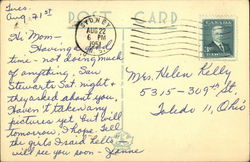 Tues.
Aug. 21st
POST CARD
SYDNEY
AUG 22
6 PM
1951
Hi Mom -
Having a good
time - not doing much
of anything. Saw
Stewarts Sat. night &
they asked about you,
Haven't taken any
pictures yet but will
tomorrow, I hope. Tell
the girls I said hello
will see you soon - Jeanne
Mrs. Helen Kelly
5315 - 319th St,
Toledo 11, Ohio